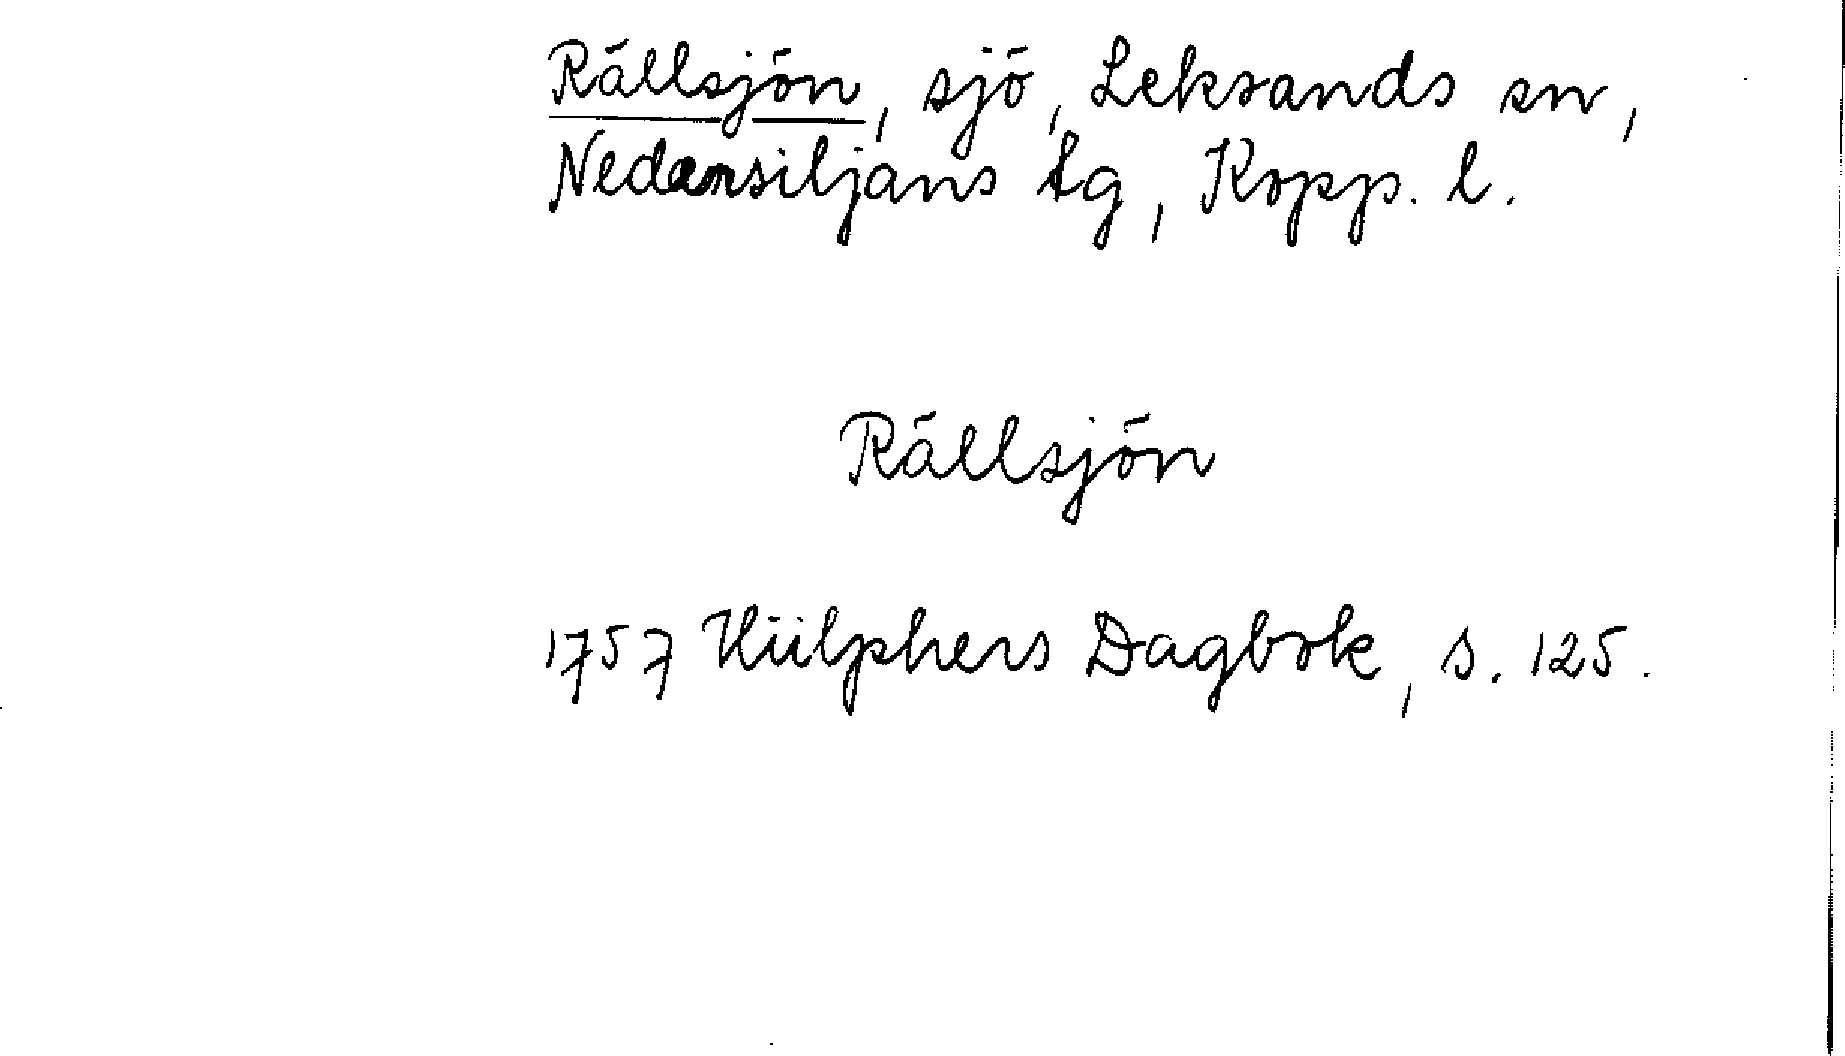 Rällsjön, sjö, Leksands sn,
Nedansiljans tg, Kopp. l.
Rällsjön
1757 Hülphers Dagbok, s. 125.